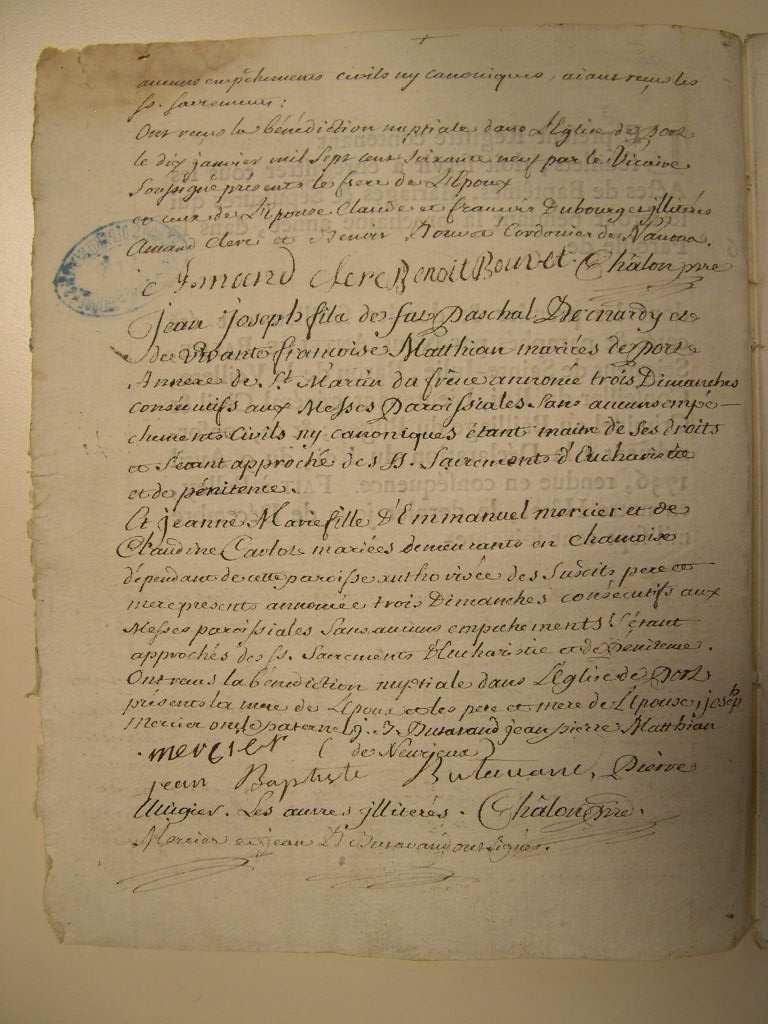 aucuns empêchements civils ny canoniques, aiant reçus les
ss. sacremens:
Ont reçus la bénédiction nuptiale dans L'Eglise de port
le dix janvier mil Sept cent soixante neuf par le Vicaire
Soussigné présents le frere de L'Epoux
et ceux de L'épouse Claude et francois Dubourget jllitérés
Amand Clerc et Benoit Bouvet Cordonier de
Amand Clerc Benoit Bouvet. Châlon ptre
Jean joseph fils de fut Paschal Bernardy et
de vivante francoise Matthian mariés de port
Annexe de St. Martin du frêne annoncé trois Dimanches
consécutifs aux Messes Paroissiales Sans aucuns empê-
chements Civils ny canoniques étant maitre de Ses droits
et S'étant approché des SS. Sacrements d'Eucharistie
et de pénitence.
Et jeanne Marie fille d'Emmanuel mercier et de
Claudine mariées demeurants en
dépendant de cette paroisse authorisée des Suscits pere et
mere présents annoncée trois Dimanches consécutifs aux
Messes paroissiales Sans aucuns empêchements S'étant
approchés des ss. Sacrements d'Eucharistie et de Pénitence.
Ont reçus la bénédiction nuptiale dans L'Eglise de Port
présents la mere de L'Epoux et les pere et mere de L'Epouse, joseph
Mercier oncle paternel j. B. jean pierre Matthian
mercier (de Neurieux)
jean Baptiste Pierre
Les autres jllitérés. Châlon ptre.
Mercier et jean B. ont Signés.